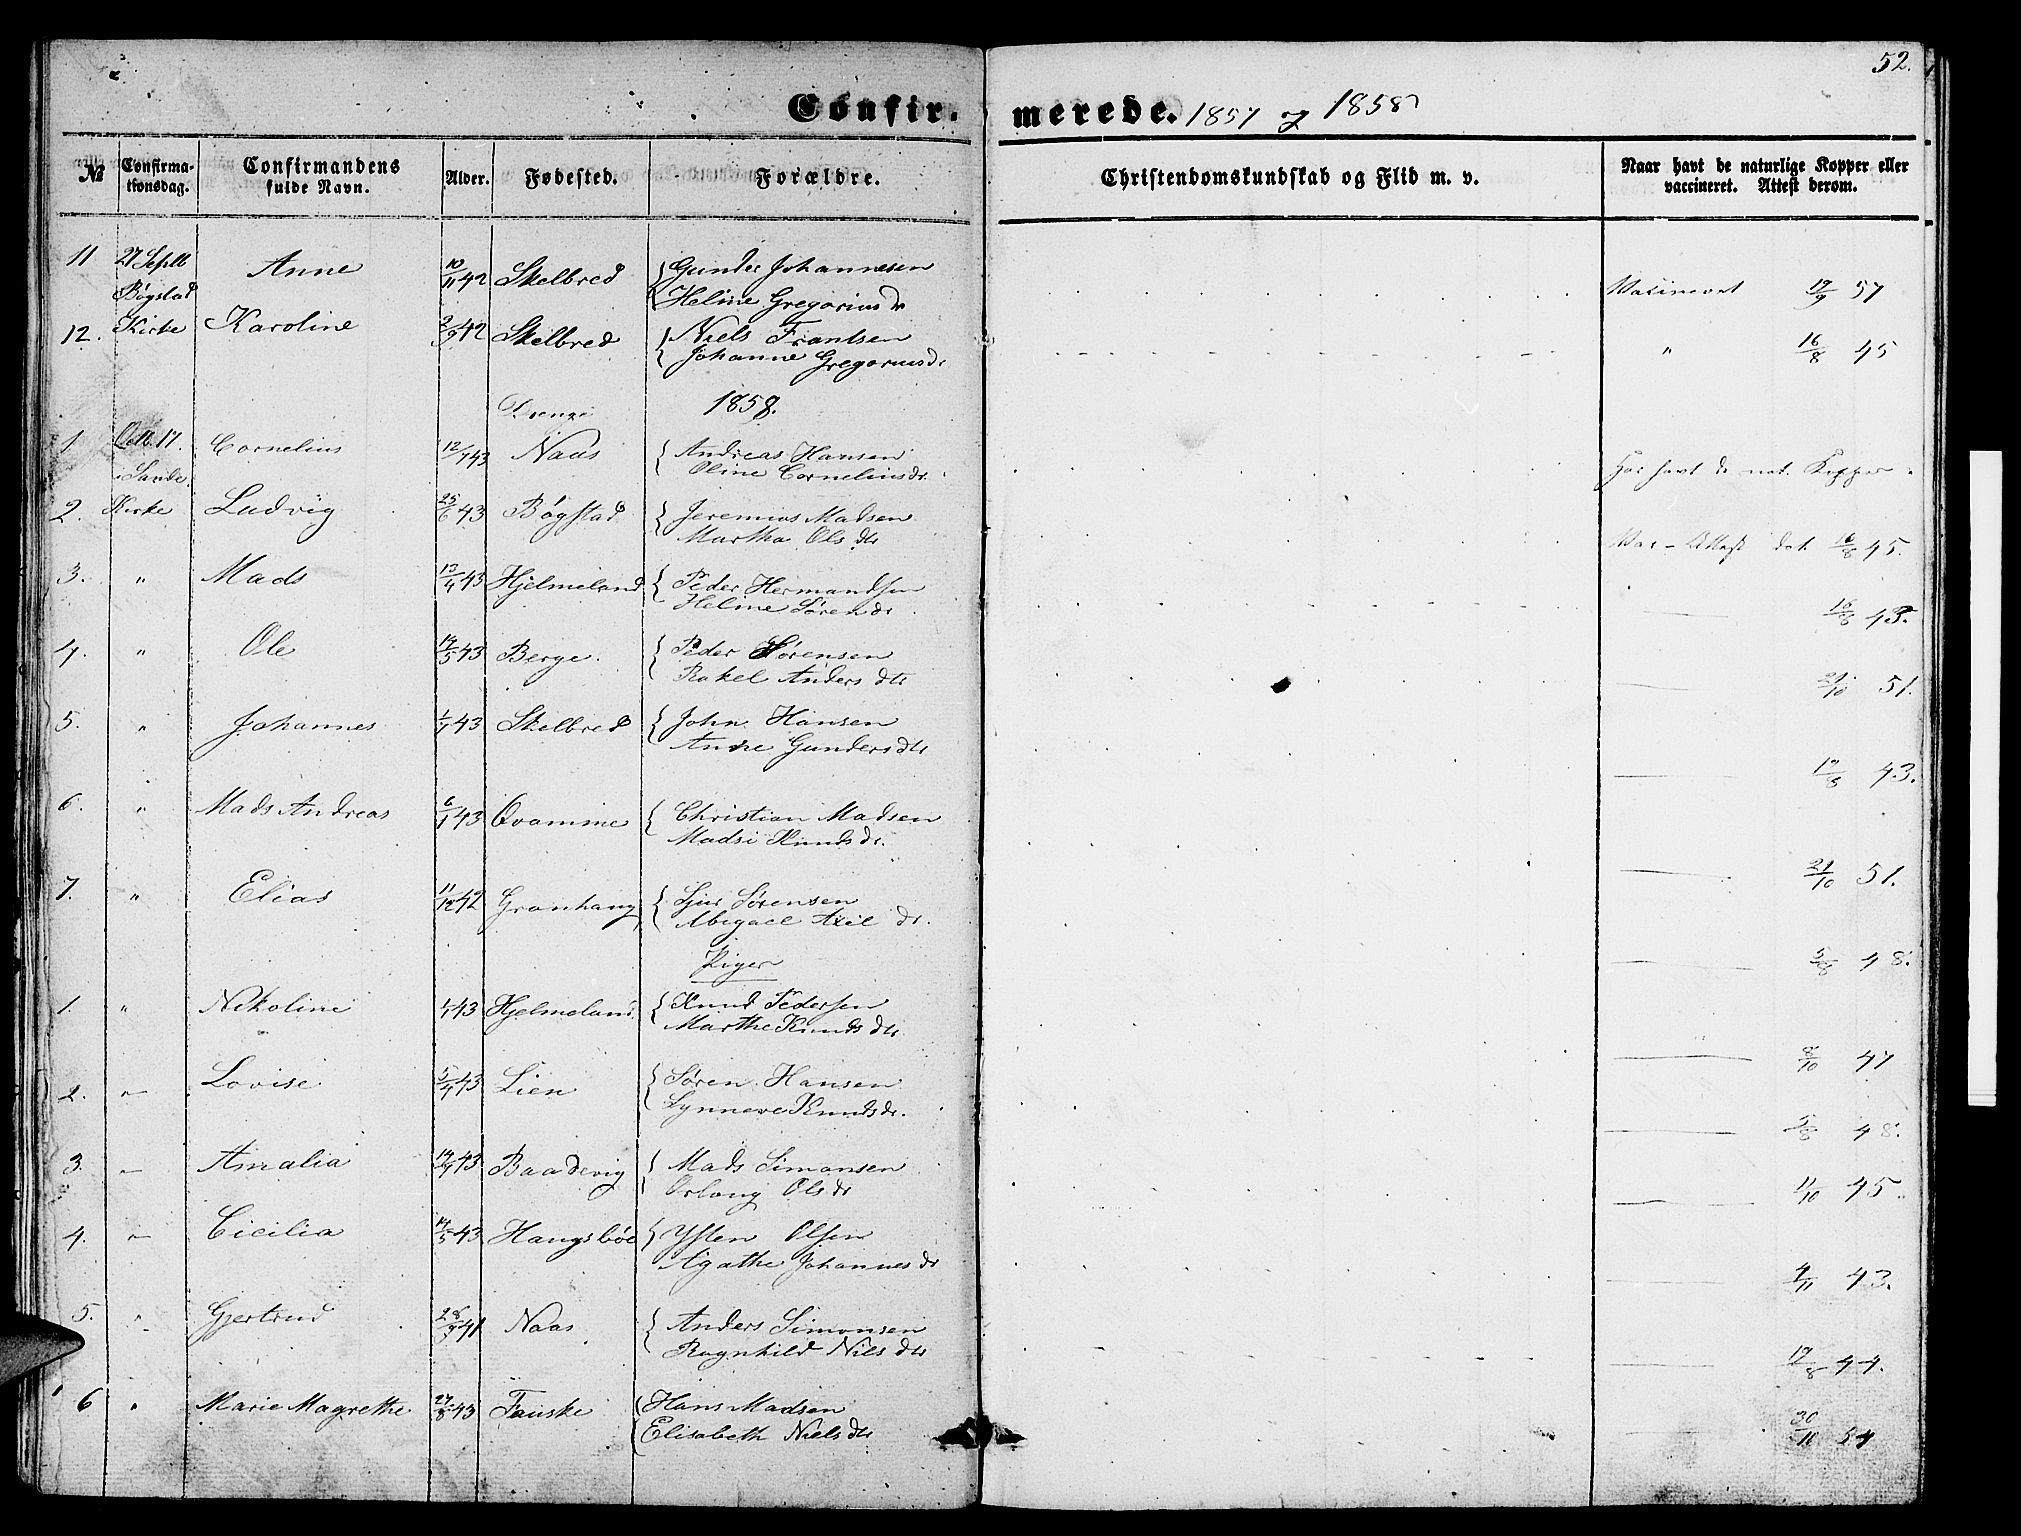 52.
Confirmerede. 1857 og 1858
№ Confirmationsdag. Confirmandens fulde Navn. Alder. Fødested. Forældre. Christendomskundskab og Flid m. v. Naar havt de naturlige Kopper eller vaccineret. Attest derom.
11 27 Septb Anne 10/11 42 Skelbred Gunder Johannesen
Bøgstad Heline Gregoriusdr 19/9 57
12. Kirke Karoline 2/9 42 Skelbred Niels Frantsen
Johanne Gregoriusdr " 16/8 45
Drenge 1858.
1 Octb. 17. Cornelius 12/7 43 Naas Andreas Hansen
Sande Oline Corneliusdr. Har havt de nat. Kopper.
2. Kirke Ludvig 25/6 43 Bøgstad Jeremias Madsen
Martha Olsdtr Vac-Attest dat. 16/8 45.
3. " Mads 13/4 43 Hjelmeland Peder Hermandsen
Heline Sørendr 18/8 43.
4. " Ole 19/5 43 Berge. Peder Sørensen
Rakel Andersdtr 21/10 51.
5. " Johannes 1/7 43 Skelbred John Hansen
Anne Gundersdtr 19/8 43.
6. " Mads Andreas 6/1 43 Qvamme Christian Madsen
Madsi Knudsdr. 21/10 51.
7. " Elias 11/12 42 Granhaug Sjur Sørensen
Abigael Axel dr. 5/8 48.
Piger
1. " Nikoline 1/1 43 Hjelmeland Knud Pedersen
Marthe Knudsdtr 8/10 47
2. Lovise 5/4 43 Lien Søren Hansen
Synneve Knudsdr. 5/8 48.
3. Amalia 19/4 43 Baadevig Mads Simonsen
Orlaug Olsdr 11/10 45.
4. Cicilia 19/5 43 Haugsbøe Ysten Olsen
Agathe Johannesdr 4/11 43.
5. " Gjertrud 28/9 41 Naas Anders Simonsen
Ragnhild Nielsdtr 19/8 44.
6 " Marie Magrethe 27/8 43 Fauske Hans Madsen
Elisabeth Nielsdtr 30/10